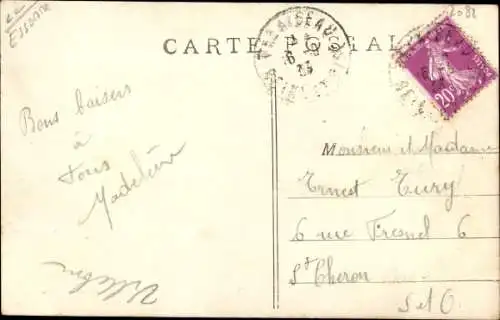 Essonne
2082
CARTE POSTALE
20c
Bons baisers
à
tous
Madeleine
Monsieur et Madame
Ernest Tury
6 rue Fresnel 6
St Cheron
S et O.